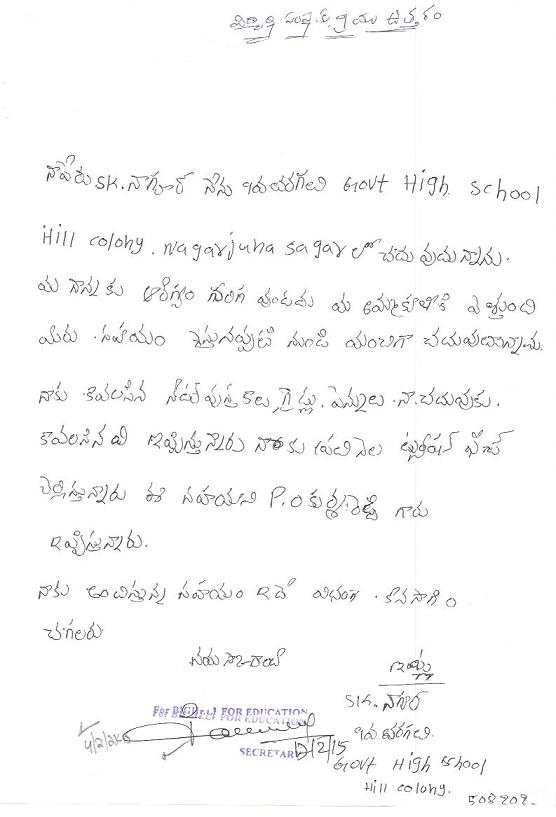 విద్యార్థి సంస్థకు వ్రాయు ఉత్తరం
నాపేరు SK. నాగూర్ నేను 10వ తరగతి Govt High School
Hill colony. Nagarjuna sagar లో చదువుచున్నాను.
మా నాన్నకు ఆరోగ్యం గురించి వుండదు మా అమ్మ కూలికి వెళ్తుంది
మీరు సహాయం చేస్తునప్పటి నుండి మంచిగా చదువుతున్నాను.
నాకు కావలసిన నోట్ పుస్తకాలు, గైడ్లు, పెన్నులు నా చదువుకు
కావలసినవి ఇప్పిస్తున్నారు నాకు ప్రతి నెల ట్యూషన్ ఫీజు
చెల్లిస్తున్నారు ఈ సహాయని P.O కుర్మారెడ్డి గారు
ఇప్పిస్తున్నారు.
నాకు అందిస్తున్న సహాయం ఇదే విధంగా కొనసాగిం
చగలరు
ఇట్లు
SK. నాగూర్
10వ తరగతి.
Govt High School
Hill colony.
508202.
For BIGHELI FOR EDUCATION
SECRETARY
12/2/15